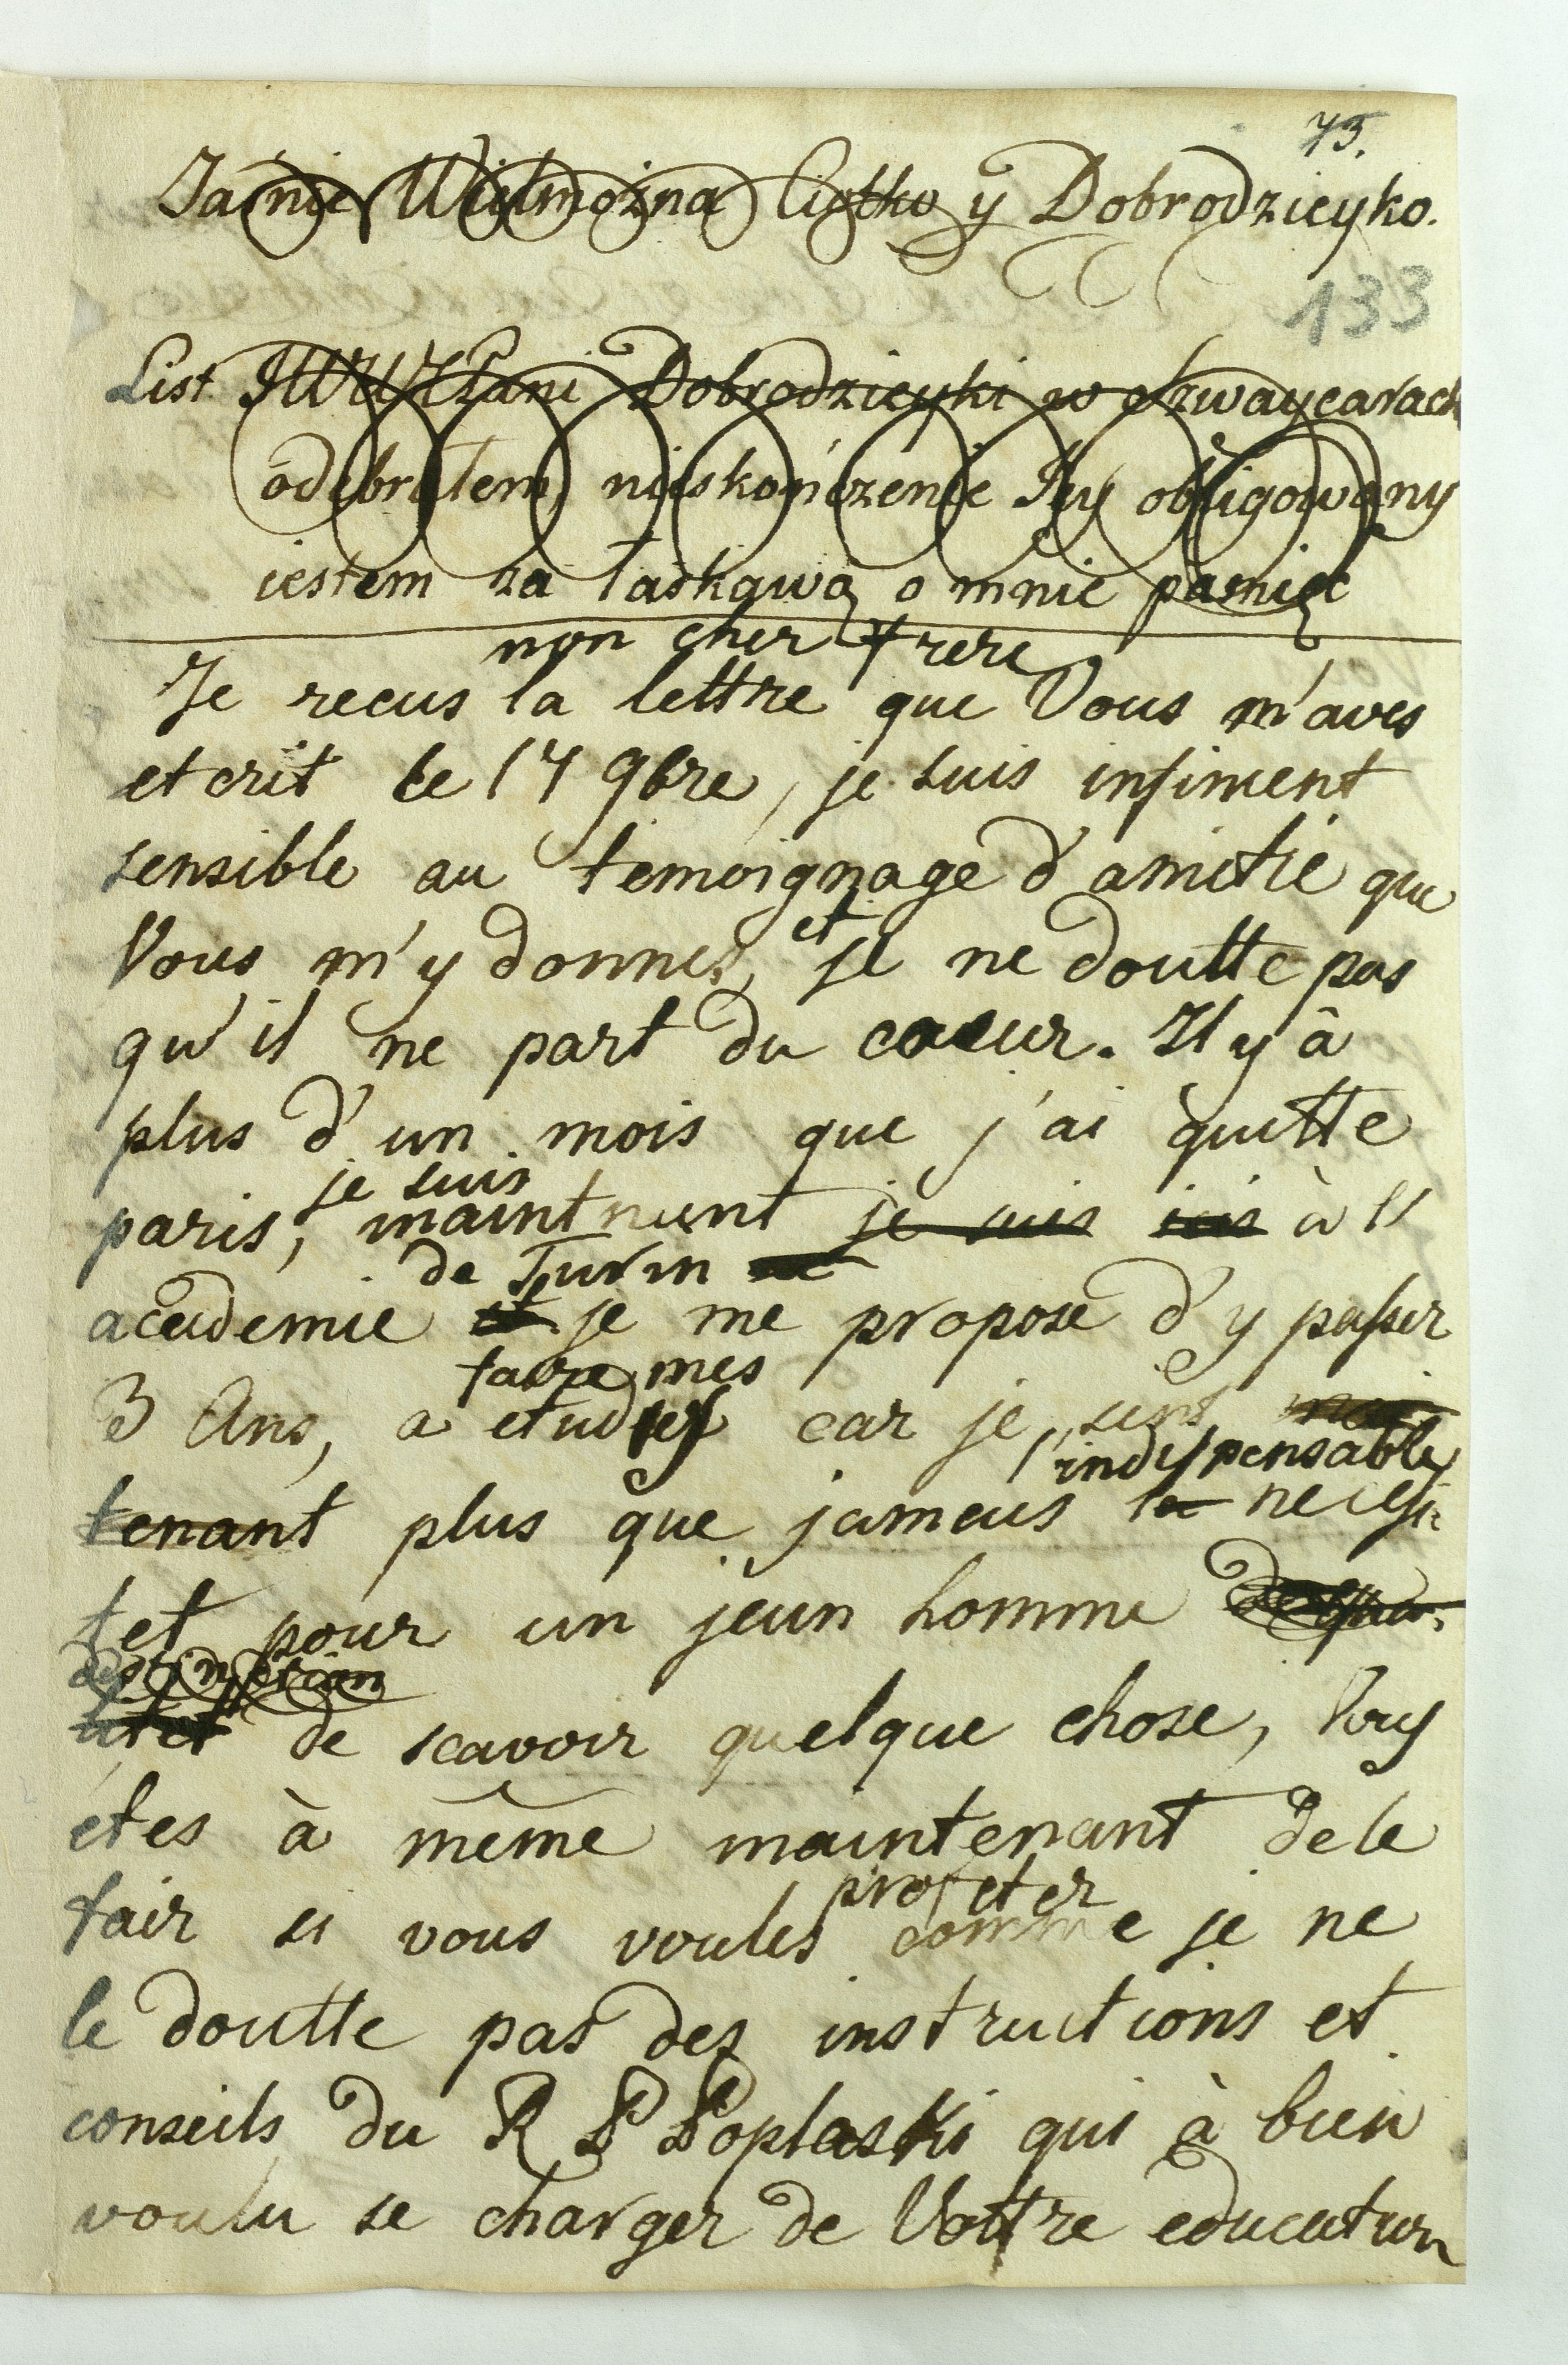 73.
Jaśnie Wielmożna Ciotko y Dobrodzieyko.
133
List JWWJPani Dobrodzieyki w Szwaycarach
odebrałem, nieskończenie Jey obligowany
iestem za łaskawą o mnie pamięć
mon cher frere
Je recus la lettre que Vous m'aves
etcrit le 17 9bre, je suis infiment
sensible au temoignage d'amitié que
Vous m'y donnes, et je ne doutte pas
qu'il ne part du coeur. Il y â
plus d'un mois que j'ai quitte
je suis
paris, maintnent je suis icis à l'
de Turin
academie et je me propose d'y passer
faire mes
3 Ans, a etudies car je sens mai
l'indispensable
tenant plus que jameus la necessi
tet pour un jeun homme
destinction
de scavoir quelque chose, Vous
étes à même maintenant de le
profeter
fair si vous voules comme je ne
le doutte pas des instructions et
conseils du R P Poplaski qui à bien
voulu se charger de Vottre education